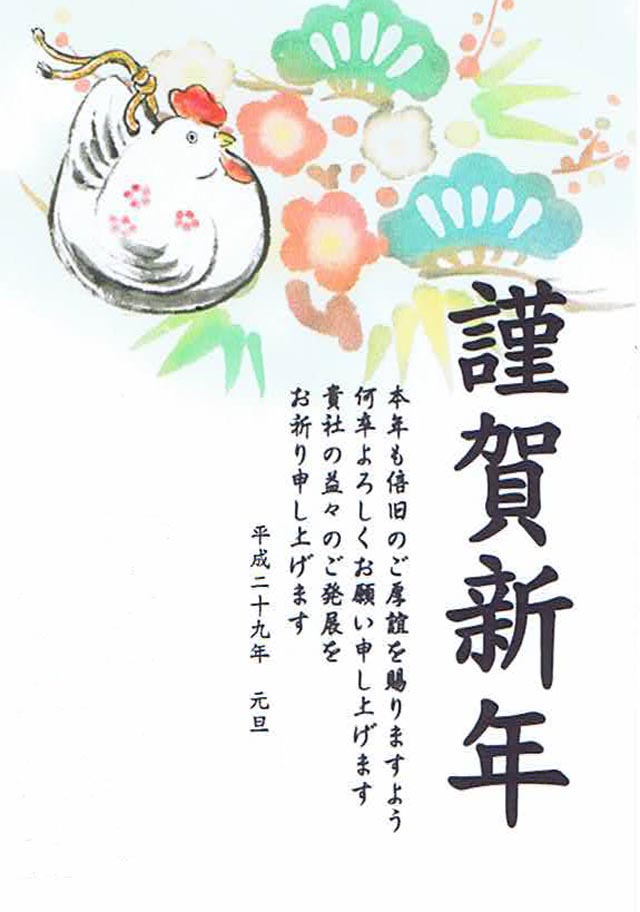 謹賀新年
本年も倍旧のご厚誼を賜りますよう
何卒よろしくお願い申し上げます
貴社の益々のご発展を
お祈り申し上げます
平成二十九年　元旦